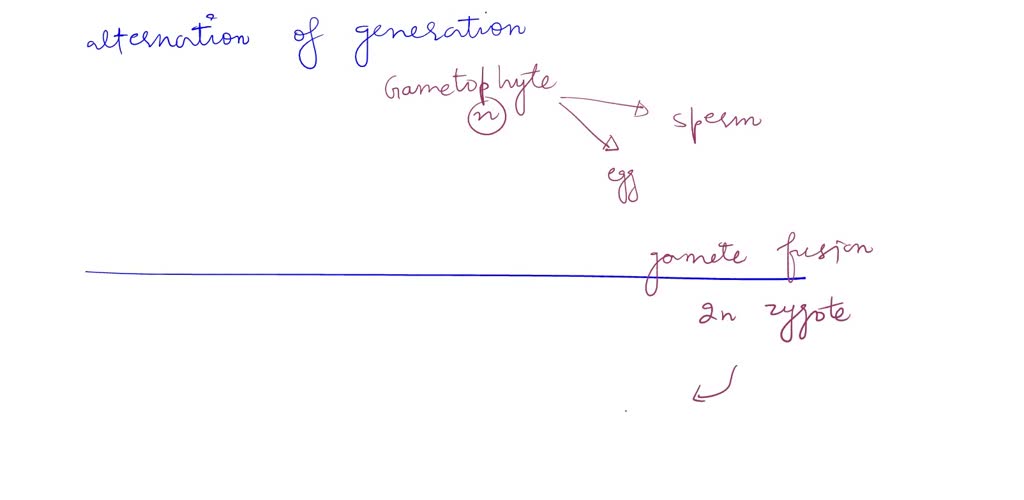 alternation of generation
Gametophyte
n
sperm
egg
gamete fusion
2n zygote